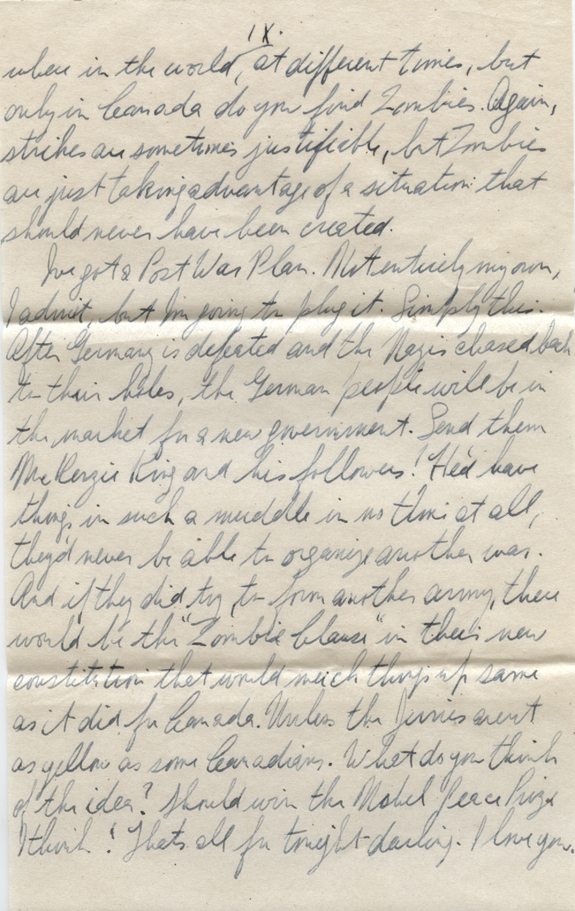 IX.
where in the world, at different times, but
only in Canada do you find Zombies. Again,
strikes are sometimes justifiable, but Zombies
are just taking advantage of a situation that
should never have been created.
I've got a Post War Plan. Not entirely my own,
I admit, but I'm going to plug it. Simply this.
After Germany is defeated and the Nazis chased back
to their holes, the German people will be in
the market for a new government. Send them
MacKenzie King and his followers! He'd have
things in such a muddle in no time at all,
they'd never be able to organize another war.
And if they did try to form another army, there
would be the "Zombie Clause" in their new
constitution that would mick things up same
as it did for Canada. Unless the Jerries aren't
as yellow as some Canadians. What do you think
of the idea? Should win the Nobel Peace Prize
I think! That's all for tonight darling. I love you.